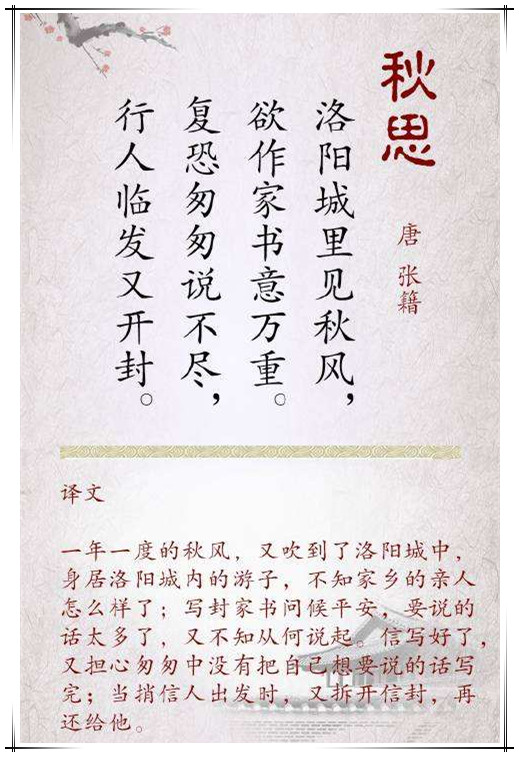 秋思
唐 张籍
洛阳城里见秋风，
欲作家书意万重。
复恐匆匆说不尽，
行人临发又开封。
译文
一年一度的秋风，又吹到了洛阳城中，
身居洛阳城内的游子，不知家乡的亲人
怎么样了；写封家书问候平安，要说的
话太多了，又不知从何说起。信写好了，
又担心匆匆中没有把自己想要说的话写
完；当捎信人出发时，又拆开信封，再
还给他。